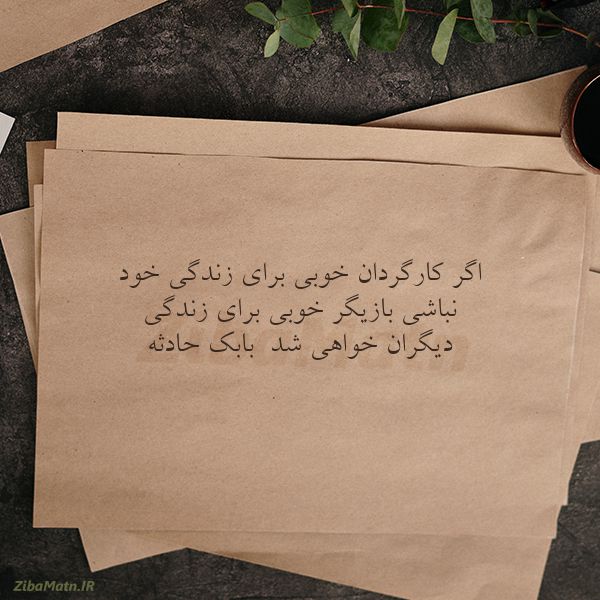 اگر کارگردان خوبی برای زندگی خود
نباشی بازیگر خوبی برای زندگی
دیگران خواهی شد  بابک حادثه
ZibaMatn.IR